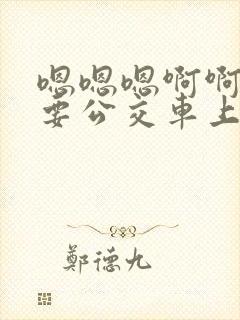 嗯嗯嗯啊啊
要公交車上
鄭德九